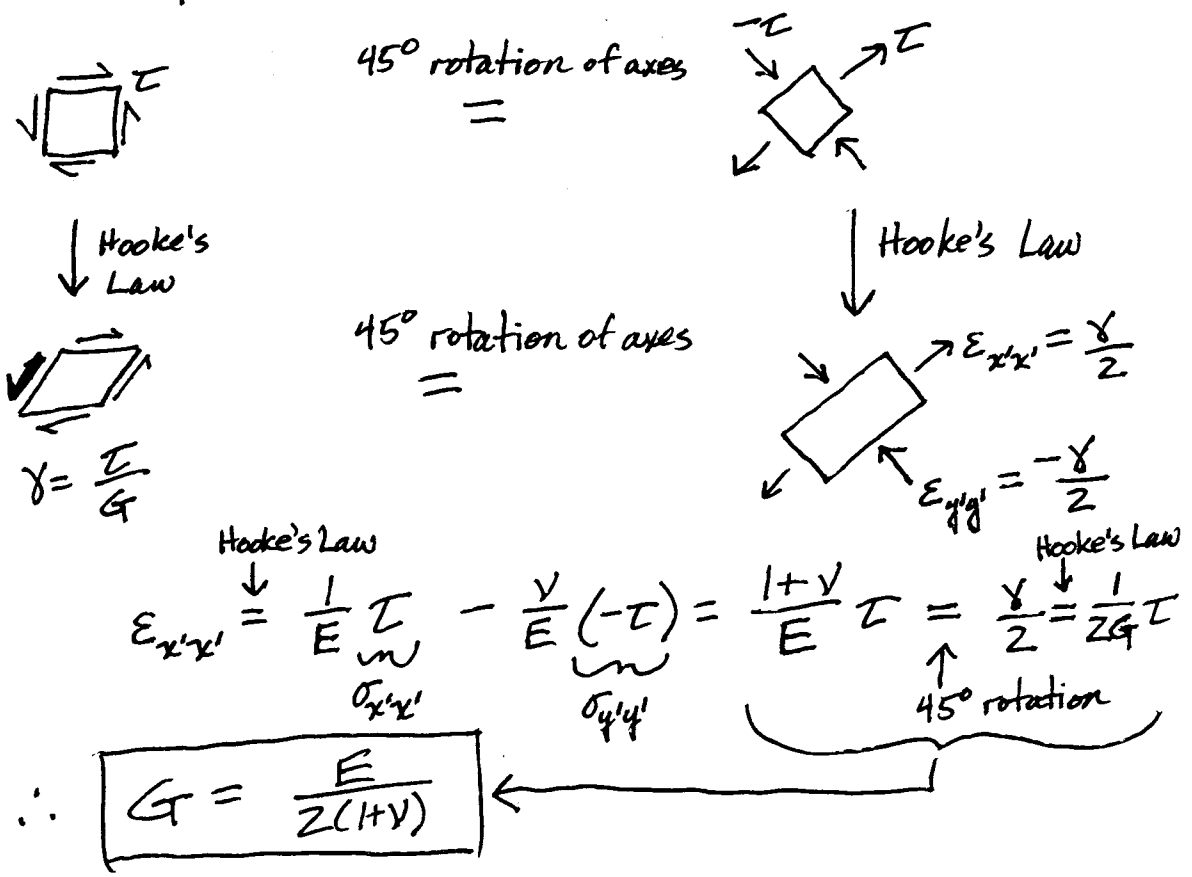 τ 45° rotation of axes = -τ τ
Hooke's Law
Hooke's Law
45° rotation of axes =
ε_x'x' = γ/2
γ = τ/G
ε_y'y' = -γ/2
Hooke's Law
Hooke's Law
ε_x'x' = 1/E τ - ν/E (-τ) = 1+ν/E τ = γ/2 = 1/2G τ
σ_x'x' σ_y'y' 45° rotation
∴ G = E/2(1+ν)